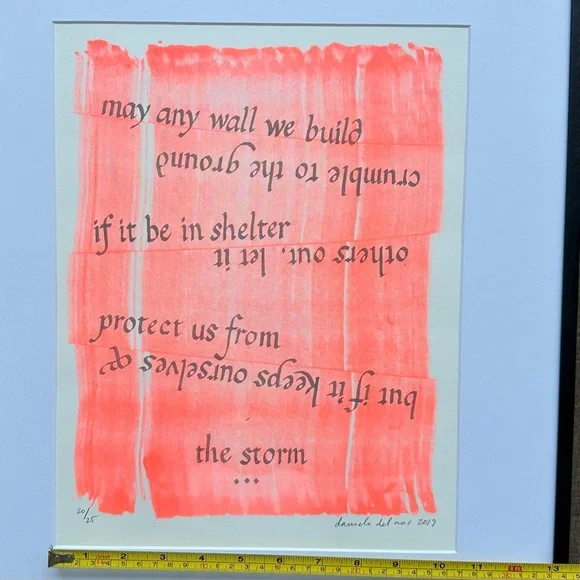 may any wall we build
if it be in shelter
protect us from
the storm
...
but if it keeps ourselves &
others out, let it
crumble to the ground
20/25
daniela del mar 2019
1 2 3 4 5 6 7 8 9 10 11 12 13